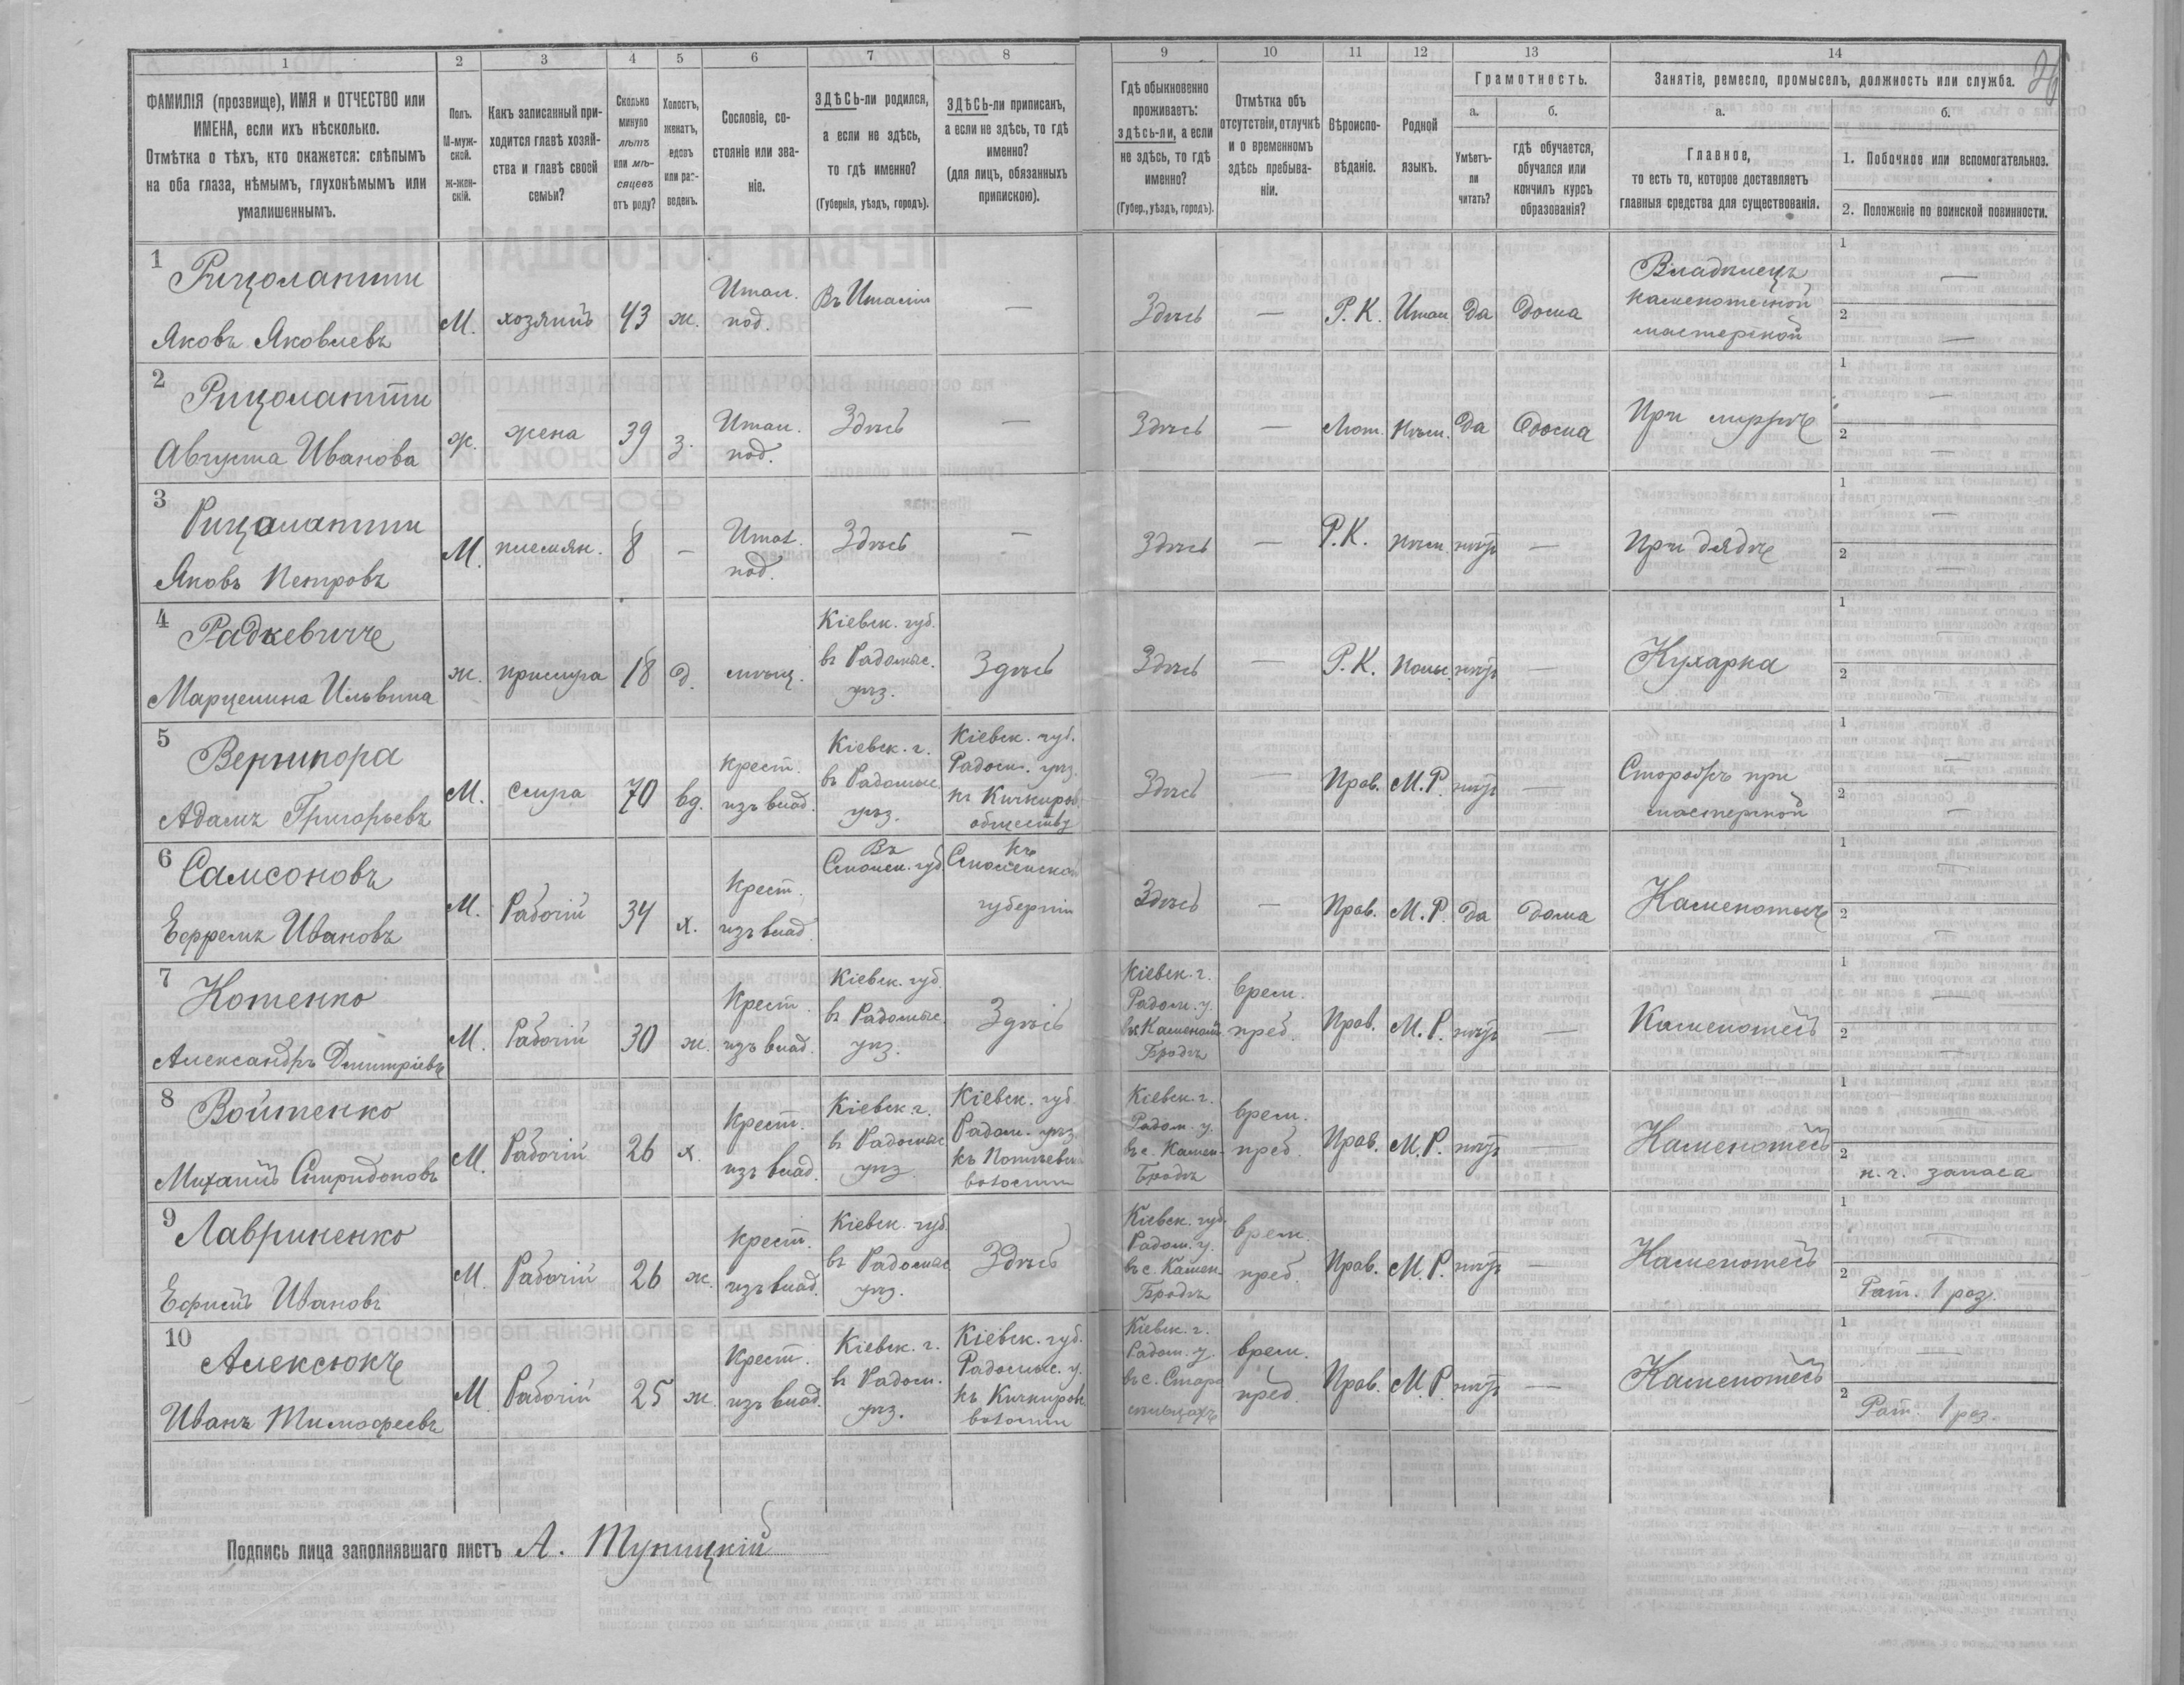 1 2 3 4 5 6 7 8 9 10 11 12 13 14
26
ФАМИЛІЯ (прозвище), ИМЯ и ОТЧЕСТВО или
ИМЕНА, если ихъ нѣсколько.
Отмѣтка о тѣхъ, кто окажется: слѣпымъ
на оба глаза, нѣмымъ, глухонѣмымъ или
умалишеннымъ.
Полъ.
М-муж-
ской.
ж-жен-
скій.
Какъ записанный при-
ходится главѣ хозяй-
ства и главѣ своей
семьи?
Сколько
минуло
лѣтъ
или мѣ-
сяцевъ
отъ роду?
Холостъ,
женатъ,
вдовъ
или раз-
веденъ.
Сословіе, со-
стояніе или зва-
ніе.
ЗДѢСЬ-ли родился,
а если не здѣсь,
то гдѣ именно?
(Губернія, уѣздъ, городъ).
ЗДѢСЬ-ли приписанъ,
а если не здѣсь, то гдѣ
именно?
(для лицъ, обязанныхъ
припискою).
Гдѣ обыкновенно
проживаетъ:
здѣсь-ли, а если
не здѣсь, то гдѣ
именно?
(Губер., уѣздъ, городъ).
Отмѣтка объ
отсутствіи, отлучкѣ
и о временномъ
здѣсь пребыва-
ніи.
Вѣроиспо-
вѣданіе.
Родной
языкъ.
Грамотность.
а.
Умѣетъ-
ли
читать?
б.
гдѣ обучается,
обучался или
кончилъ курсъ
образованія?
Занятіе, ремесло, промыселъ, должность или служба.
а.
Главное,
то есть то, которое доставляетъ
главныя средства для существованія.
б.
1. Побочное или вспомогательное.
2. Положеніе по воинской повинности.
1
Рицолатти
Яковъ Яковлевъ
М. хозяинъ 43 ж.
Итал.
под.
Въ Италіи
—
Здѣсь — Р.К. Итал да дома
Владѣлецъ
каменотесной
мастерской
1 —
2 —
2
Рицолатти
Августа Иванова
ж. жена 39 з.
Итал.
под.
Здѣсь —
Здѣсь — Лют. нѣм. да дома
При мужѣ
1 —
2 —
3
Рицолатти
Яковъ Петровъ
М. племян. 8 —
Итал.
под.
Здѣсь —
Здѣсь — Р.К. нѣм нѣтъ —
При дядѣ
1 —
2 —
4
Радкевичъ
Марцелина
ж. прислуга 18 д. мѣщ.
Кіевск. губ.
въ Радомыс.
уѣз.
Здѣсь
Здѣсь — Р.К. поль. нѣтъ —
Кухарка
1 —
2 —
5
Вернигора
Адамъ Григорьевъ
М. слуга 70 вд.
Крест.
изъ влад.
Кіевск. г.
въ Радомыс.
уѣз.
Кіевск. губ.
Радом. уѣз.
къ Кичкиров.
обществу
Здѣсь — Прав. М.Р. нѣтъ —
Сторожъ при
мастерской
1 —
2 —
6
Самсоновъ
Ефремъ Ивановъ
М. Рабочій 34 х.
Крест.
изъ влад.
Въ
Смолен. губ
Къ
Смоленской
губерніи
Здѣсь — Прав. М.Р. да дома
Каменотесъ
1 —
2 —
7
Котенко
Александръ Дмитріевъ
М. Рабочій 30 ж.
Крест.
изъ влад.
Кіевск. губ.
въ Радомыс.
уѣз.
Здѣсь
Кіевск. г.
Радом. у.
въ Каменомъ
Бродѣ
врем.
преб.
Прав. М.Р. нѣтъ —
Каменотесъ
1 —
2 —
8
Войтенко
Михаилъ Спиридоновъ
М. Рабочій 26 х.
Крест.
изъ влад.
Кіевск г.
въ Радомыс
уѣз.
Кіевск. губ.
Радом. уѣз.
волости
Кіевск. г.
Радом. у.
въ с. Камен.
Бродѣ
врем.
преб.
Прав. М.Р. нѣтъ —
Каменотесъ
1 —
2
н. ч. запаса
9
Лавриненко
Ефимъ Ивановъ
М. Рабочій 26 ж.
Крест.
изъ влад.
Кіевск. губ.
въ Радомыс
уѣз.
Здѣсь
Кіевск. губ.
Радом. у.
въ с. Камен.
Бродѣ
врем.
преб.
Прав. М.Р. нѣтъ —
Каменотесъ
1 —
2
Рат. 1 раз.
10
Алексюкъ
Иванъ Тимофеевъ
М. Рабочій 25 ж.
Крест.
изъ влад.
Кіевск. г.
въ Радом.
уѣз.
Кіевск. губ.
Радомыс. у.
къ Кичкиров.
волости
Кіевск. г.
Радом. у.
въ с.
врем.
преб.
Прав. М.Р. нѣтъ —
Каменотесъ
1 —
2
Рат. 1 раз.
Подпись лица заполнявшаго листъ А. Тупицкій